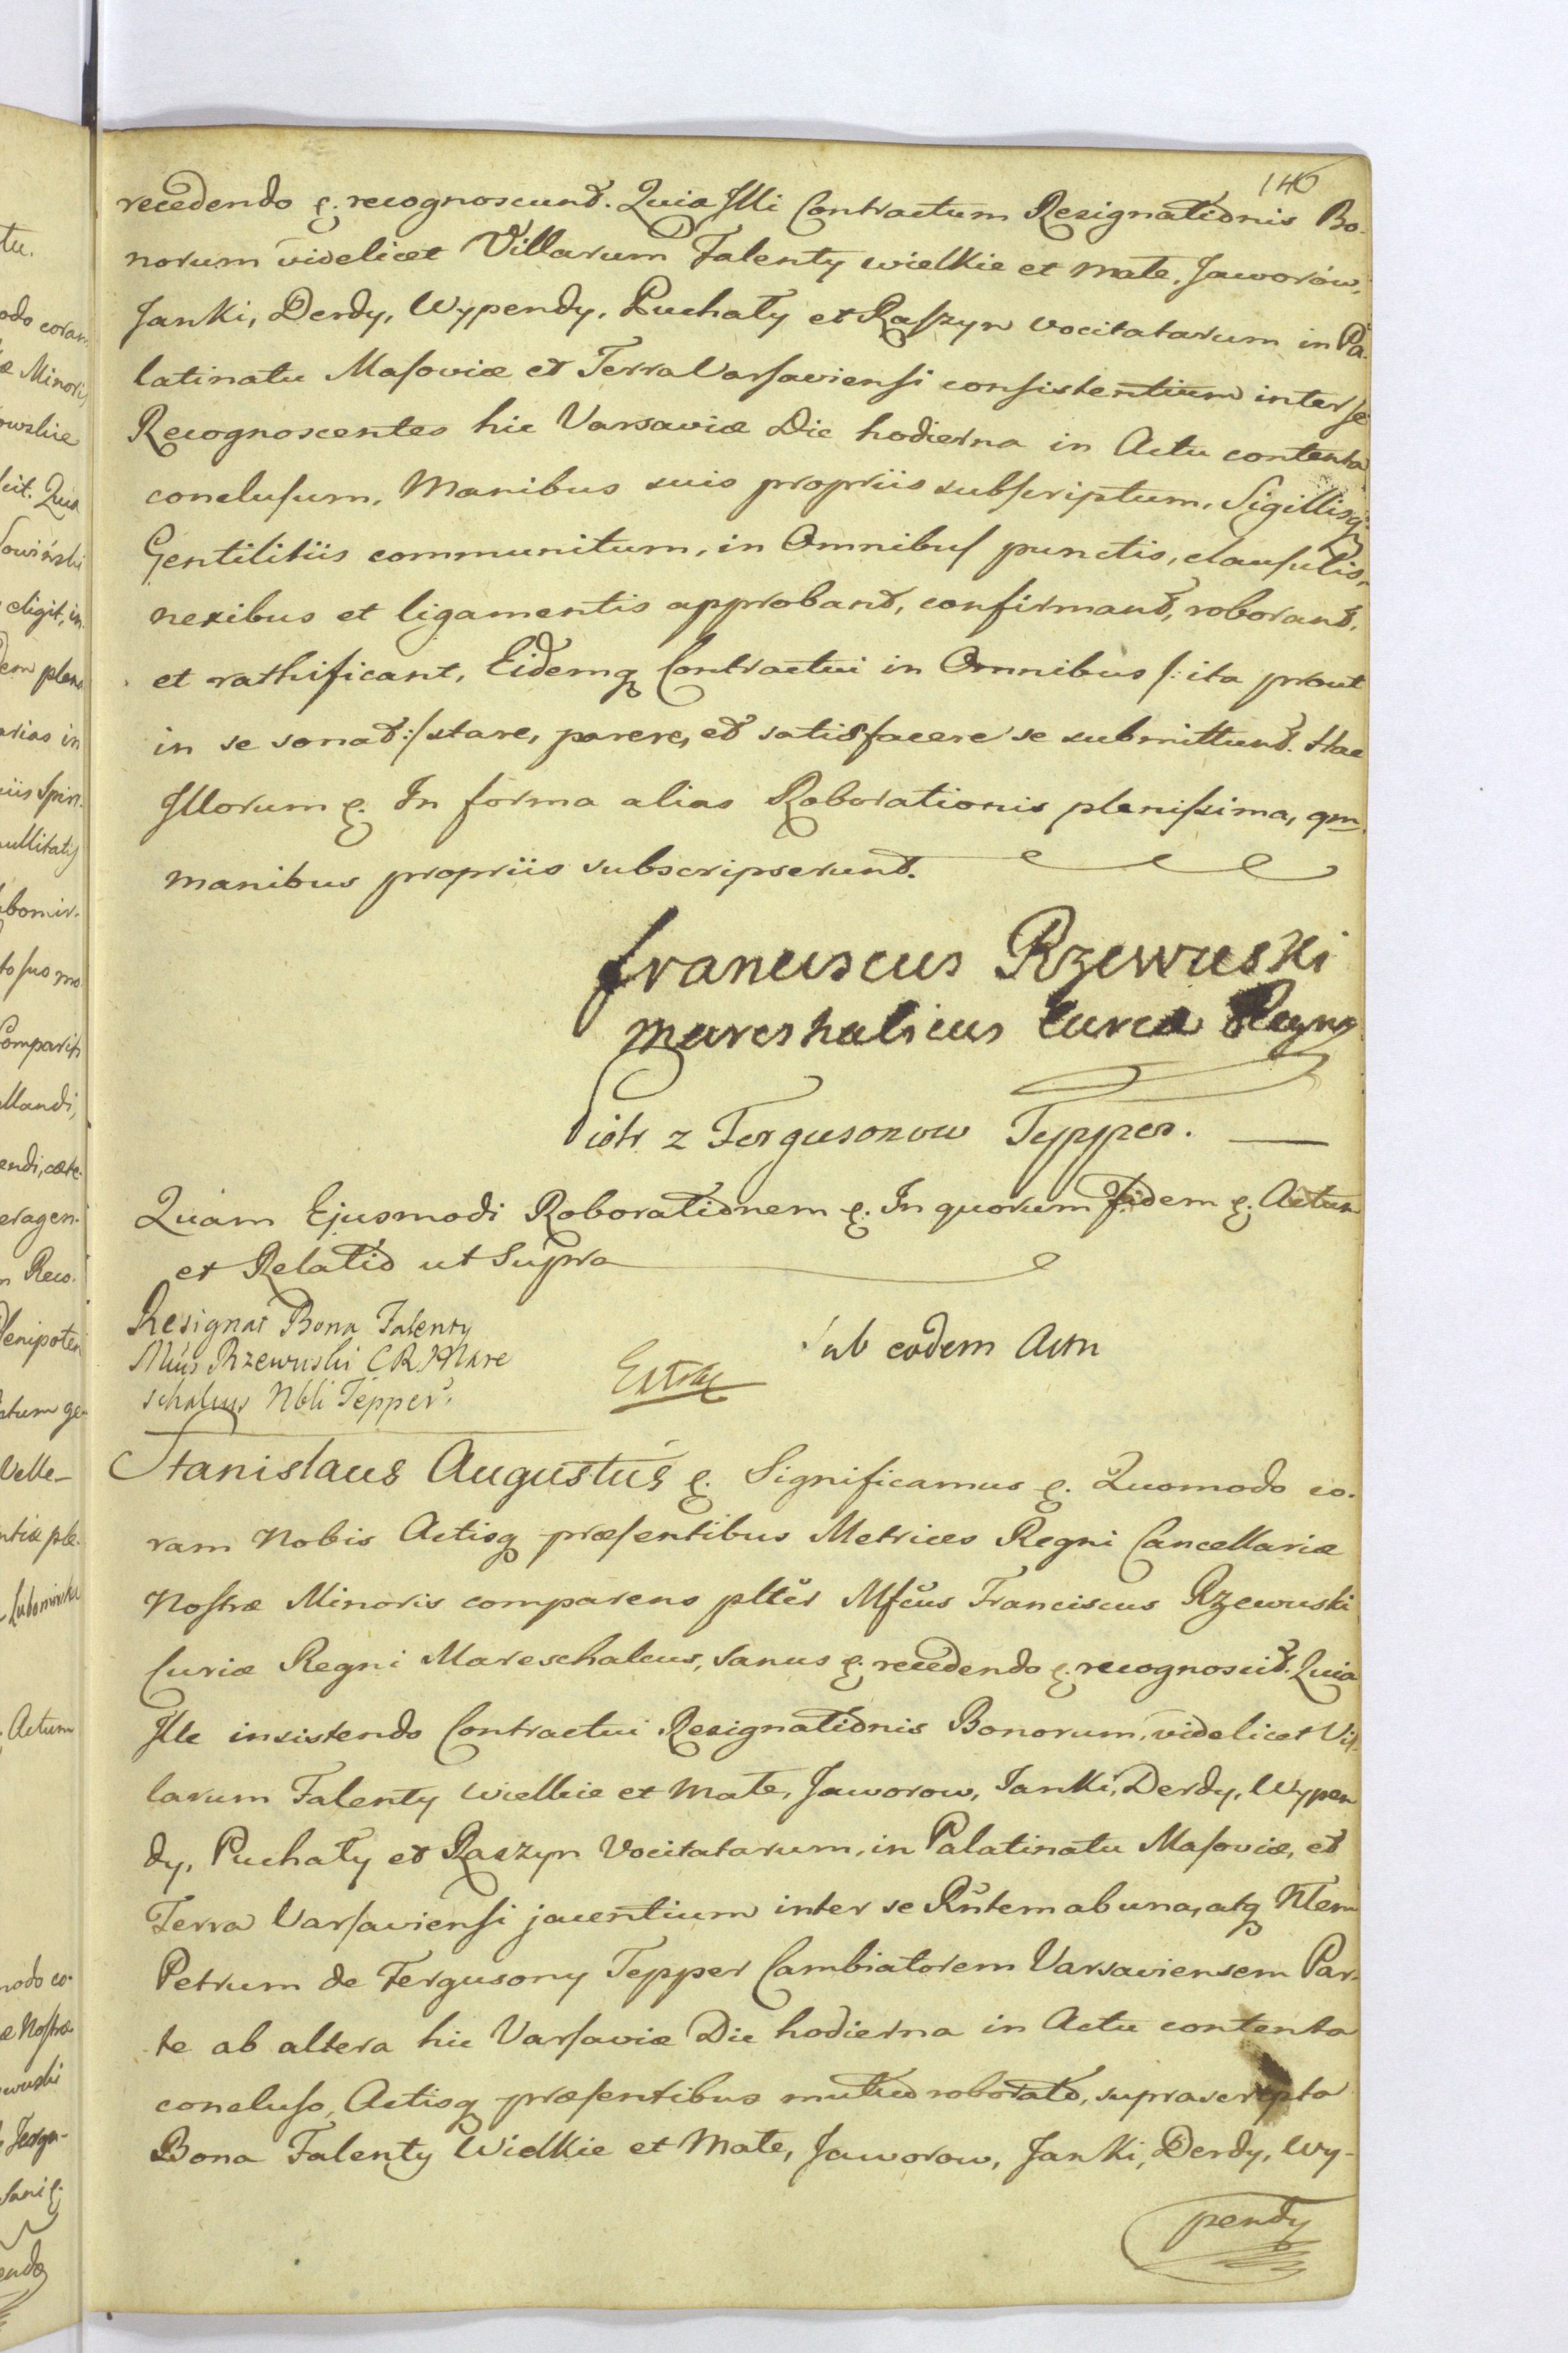 146
recedendo &. recognoscunt. Quia Illi Contractum Resignationis Bo-
norum videlicet Villarum Falenty wielkie et małe, Jaworów,
Janki, Derdy, Wypendy, Puchały et Raſzyn vocitatarum in Pa-
latinatu Maſoviæ et Terra Varſavienſi conſistentium inter ſe
Recognoscentes hic Varsaviæ Die hodierna in Actu contenta
concluſum, Manibus suis propriis subſcriptum, Sigillisq
Gentilitiis communitum, in Omnibuſ punctis, clauſulis,
nexibus et ligamentis approbant, confirmant, roborant,
et rathificant, Eidemq Contractui in Omnibus /: ita prout
in se sonat :/ stare, parere, et satisfacere se submittunt. Hac
Illorum &. In forma alias Roborationis pleniſsima, qm
manibus propriis subscripserunt.
franciscus Rzewuski
mareshalicus Curea Regny
Piotr z Fergusonow Tepper.
Quam Ejusmodi Roborationem &. In quorum Fidem &. Actum
et Relatio ut Supra
Resignat Bona Falenty
Mfus Rzewuski C R Mare
schalcus Nbli Tepper.
Extrac
Sub eodem Actu
Stanislaus Augustus &. Significamus &. Quomodo co-
ram Nobis Actisq præſentibus Metrices Regni Cancellariæ
Noſtræ Minoris comparens plter Mfcus Franciscus Rzewuski
Curiæ Regni Mareschalcus, sanus &. recedendo &. recognoscit. Quia
Ille insistendo Contractui Resignationis Bonorum, videlicet Vil-
larum Falenty wielkie et Małe, Jaworow, Janki, Derdy, Wypen
dy, Puchały et Raszyn Vocitatarum, in Palatinatu Maſoviæ, et
Terra Varſavienſi jacentium inter se Rntem ab una, atq Nlem
Petrum de Fergusony Tepper Cambiatorem Varsaviensem Par-
te ab altera hic Varſaviæ Die hodierna in Actu contenta
concluſo, Actisq præſentibus mutuo roborato, suprascripta
Bona Falenty Wielkie et Małe, Jaworow, Janki, Derdy, Wy-
pendy